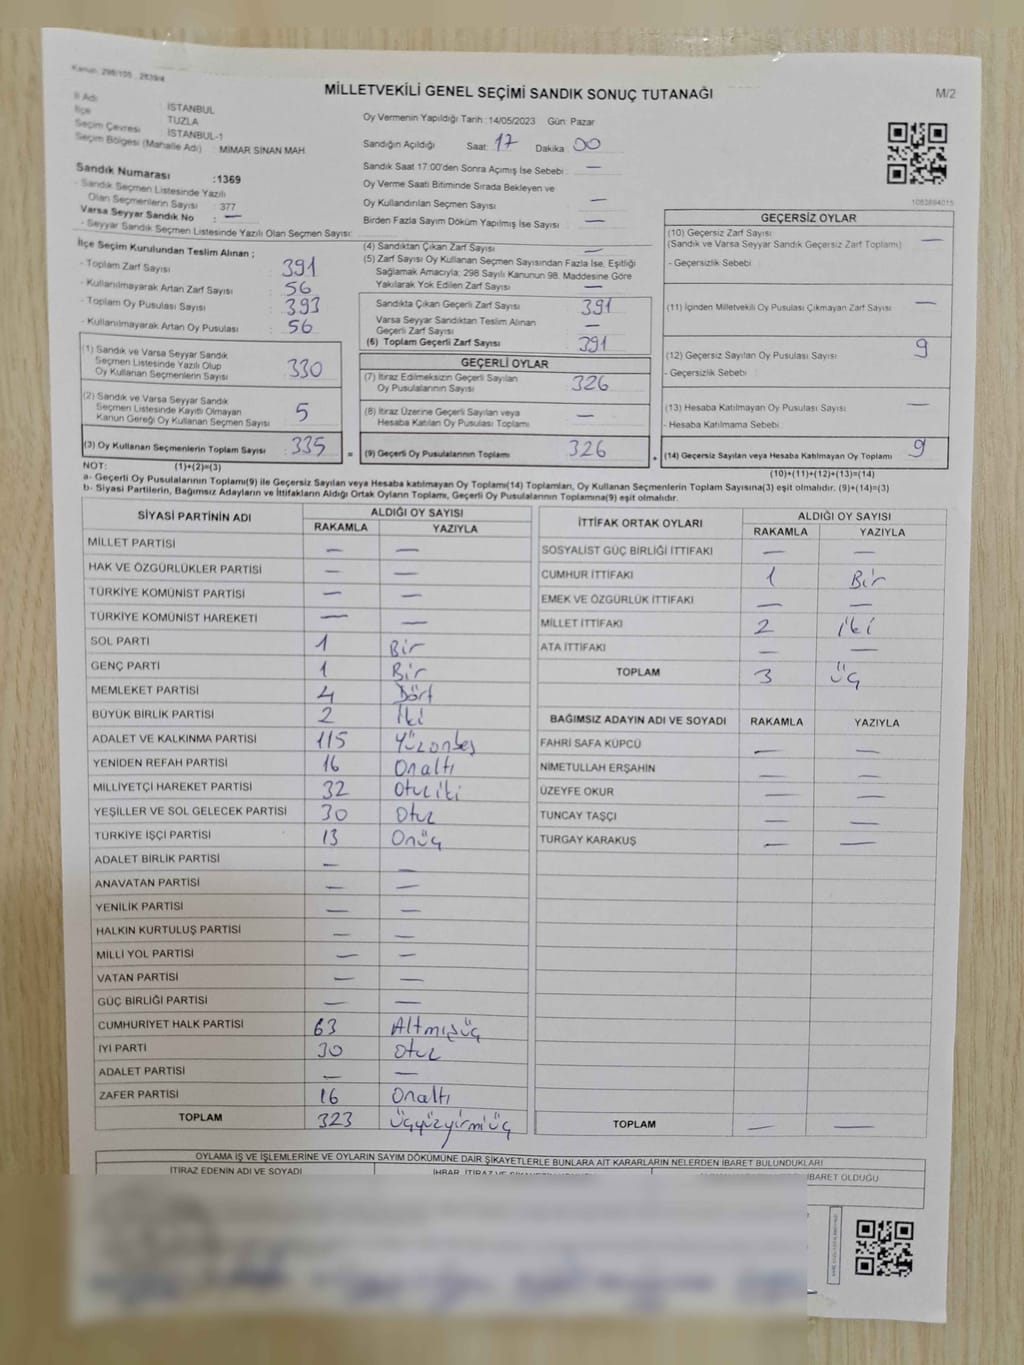 Kanun: 298/105 , 2839/4
MİLLETVEKİLİ GENEL SEÇİMİ SANDIK SONUÇ TUTANAĞI
M/2
İl Adı : İSTANBUL
İlçe : TUZLA
Seçim Çevresi : İSTANBUL-1
Seçim Bölgesi (Mahalle Adı) : MİMAR SİNAN MAH.
Sandık Numarası :1369
- Sandık Seçmen Listesinde Yazılı
Olan Seçmenlerin Sayısı : 377
Varsa Seyyar Sandık No : —
- Seyyar Sandık Seçmen Listesinde Yazılı Olan Seçmen Sayısı:
Oy Vermenin Yapıldığı Tarih :14/05/2023 Gün: Pazar
Sandığın Açıldığı Saat: 17 Dakika 00
Sandık Saat 17:00'den Sonra Açımış İse Sebebi : —
Oy Verme Saati Bitiminde Sırada Bekleyen ve
Oy Kullandırılan Seçmen Sayısı : —
Birden Fazla Sayım Döküm Yapılmış İse Sayısı : —
1083894015
İlçe Seçim Kurulundan Teslim Alınan ;
- Toplam Zarf Sayısı : 391
- Kullanılmayarak Artan Zarf Sayısı : 56
- Toplam Oy Pusulası Sayısı : 393
- Kullanılmayarak Artan Oy Pusulası : 56
(1) Sandık ve Varsa Seyyar Sandık
Seçmen Listesinde Yazılı Olup
Oy Kullanan Seçmenlerin Sayısı : 330
(2) Sandık ve Varsa Seyyar Sandık
Seçmen Listesinde Kayıtlı Olmayan
Kanun Gereği Oy Kullanan Seçmen Sayısı : 5
(3) Oy Kullanan Seçmenlerin Toplam Sayısı : 335 =
(4) Sandıktan Çıkan Zarf Sayısı : —
(5) Zarf Sayısı Oy Kullanan Seçmen Sayısından Fazla İse, Eşitliği
Sağlamak Amacıyla; 298 Sayılı Kanunun 98. Maddesine Göre
Yakılarak Yok Edilen Zarf Sayısı : —
Sandıkta Çıkan Geçerli Zarf Sayısı : 391
Varsa Seyyar Sandıktan Teslim Alınan
Geçerli Zarf Sayısı : —
(6) Toplam Geçerli Zarf Sayısı : 391
GEÇERLİ OYLAR
(7) İtiraz Edilmeksizin Geçerli Sayılan
Oy Pusulalarının Sayısı : 326
(8) İtiraz Üzerine Geçerli Sayılan veya
Hesaba Katılan Oy Pusulası Toplamı : —
(9) Geçerli Oy Pusulalarının Toplamı : 326 +
GEÇERSİZ OYLAR
(10) Geçersiz Zarf Sayısı : —
(Sandık ve Varsa Seyyar Sandık Geçersiz Zarf Toplamı)
- Geçersizlik Sebebi :
(11) İçinden Milletvekili Oy Pusulası Çıkmayan Zarf Sayısı : —
(12) Geçersiz Sayılan Oy Pusulası Sayısı : 9
- Geçersizlik Sebebi :
(13) Hesaba Katılmayan Oy Pusulası Sayısı : —
- Hesaba Katılmama Sebebi :
(14) Geçersiz Sayılan veya Hesaba Katılmayan Oy Toplamı : 9
NOT: (1)+(2)=(3) (10)+(11)+(12)+(13)=(14)
a- Geçerli Oy Pusulalarının Toplamı(9) ile Geçersiz Sayılan veya Hesaba katılmayan Oy Toplamı(14) Toplamları, Oy Kullanan Seçmenlerin Toplam Sayısına(3) eşit olmalıdır. (9)+(14)=(3)
b- Siyasi Partilerin, Bağımsız Adayların ve İttifakların Aldığı Ortak Oyların Toplamı, Geçerli Oy Pusulalarının Toplamına(9) eşit olmalıdır.
SİYASİ PARTİNİN ADI ALDIĞI OY SAYISI
RAKAMLA YAZIYLA
MİLLET PARTİSİ — —
HAK VE ÖZGÜRLÜKLER PARTİSİ — —
TÜRKİYE KOMÜNİST PARTİSİ — —
TÜRKİYE KOMÜNİST HAREKETİ — —
SOL PARTİ 1 Bir
GENÇ PARTİ 1 Bir
MEMLEKET PARTİSİ 4 Dört
BÜYÜK BİRLİK PARTİSİ 2 İki
ADALET VE KALKINMA PARTİSİ 115 Yüzonbeş
YENİDEN REFAH PARTİSİ 16 Onaltı
MİLLİYETÇİ HAREKET PARTİSİ 32 Otuz iki
YEŞİLLER VE SOL GELECEK PARTİSİ 30 Otuz
TÜRKİYE İŞÇİ PARTİSİ 13 Onüç
ADALET BİRLİK PARTİSİ — —
ANAVATAN PARTİSİ — —
YENİLİK PARTİSİ — —
HALKIN KURTULUŞ PARTİSİ — —
MİLLİ YOL PARTİSİ — —
VATAN PARTİSİ — —
GÜÇ BİRLİĞİ PARTİSİ — —
CUMHURİYET HALK PARTİSİ 63 Altmışüç
İYİ PARTİ 30 Otuz
ADALET PARTİSİ — —
ZAFER PARTİSİ 16 Onaltı
TOPLAM 323 Üçyüzyirmiüç
İTTİFAK ORTAK OYLARI ALDIĞI OY SAYISI
RAKAMLA YAZIYLA
SOSYALİST GÜÇ BİRLİĞİ İTTİFAKI — —
CUMHUR İTTİFAKI 1 Bir
EMEK VE ÖZGÜRLÜK İTTİFAKI — —
MİLLET İTTİFAKI 2 iki
ATA İTTİFAKI — —
TOPLAM 3 Üç
BAĞIMSIZ ADAYIN ADI VE SOYADI RAKAMLA YAZIYLA
FAHRİ SAFA KÜPCÜ — —
NİMETULLAH ERŞAHİN — —
ÜZEYFE OKUR — —
TUNCAY TAŞÇI — —
TURGAY KARAKUŞ — —
TOPLAM — —
OYLAMA İŞ VE İŞLEMLERİNE VE OYLARIN SAYIM DÖKÜMÜNE DAİR ŞİKAYETLERLE BUNLARA AİT KARARLARIN NELERDEN İBARET BULUNDUKLARI
İTİRAZ EDENİN ADI VE SOYADI
İHBAR, İTİRAZ VE
İBARET OLDUĞU